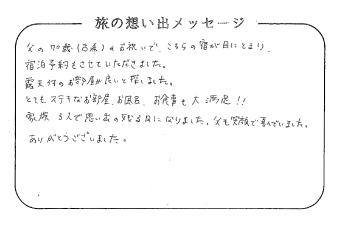 旅の想い出メッセージ
父の70歳(古希)のお祝いで、こちらの宿が目にとまり、
宿泊予約をさせていただきました。
露天付のお部屋が良いと探しました。
とてもステキなお部屋、お風呂、お食事も大満足!!
家族3人で思い出の残る日になりました。父も笑顔で喜んでいました。
ありがとうございました。